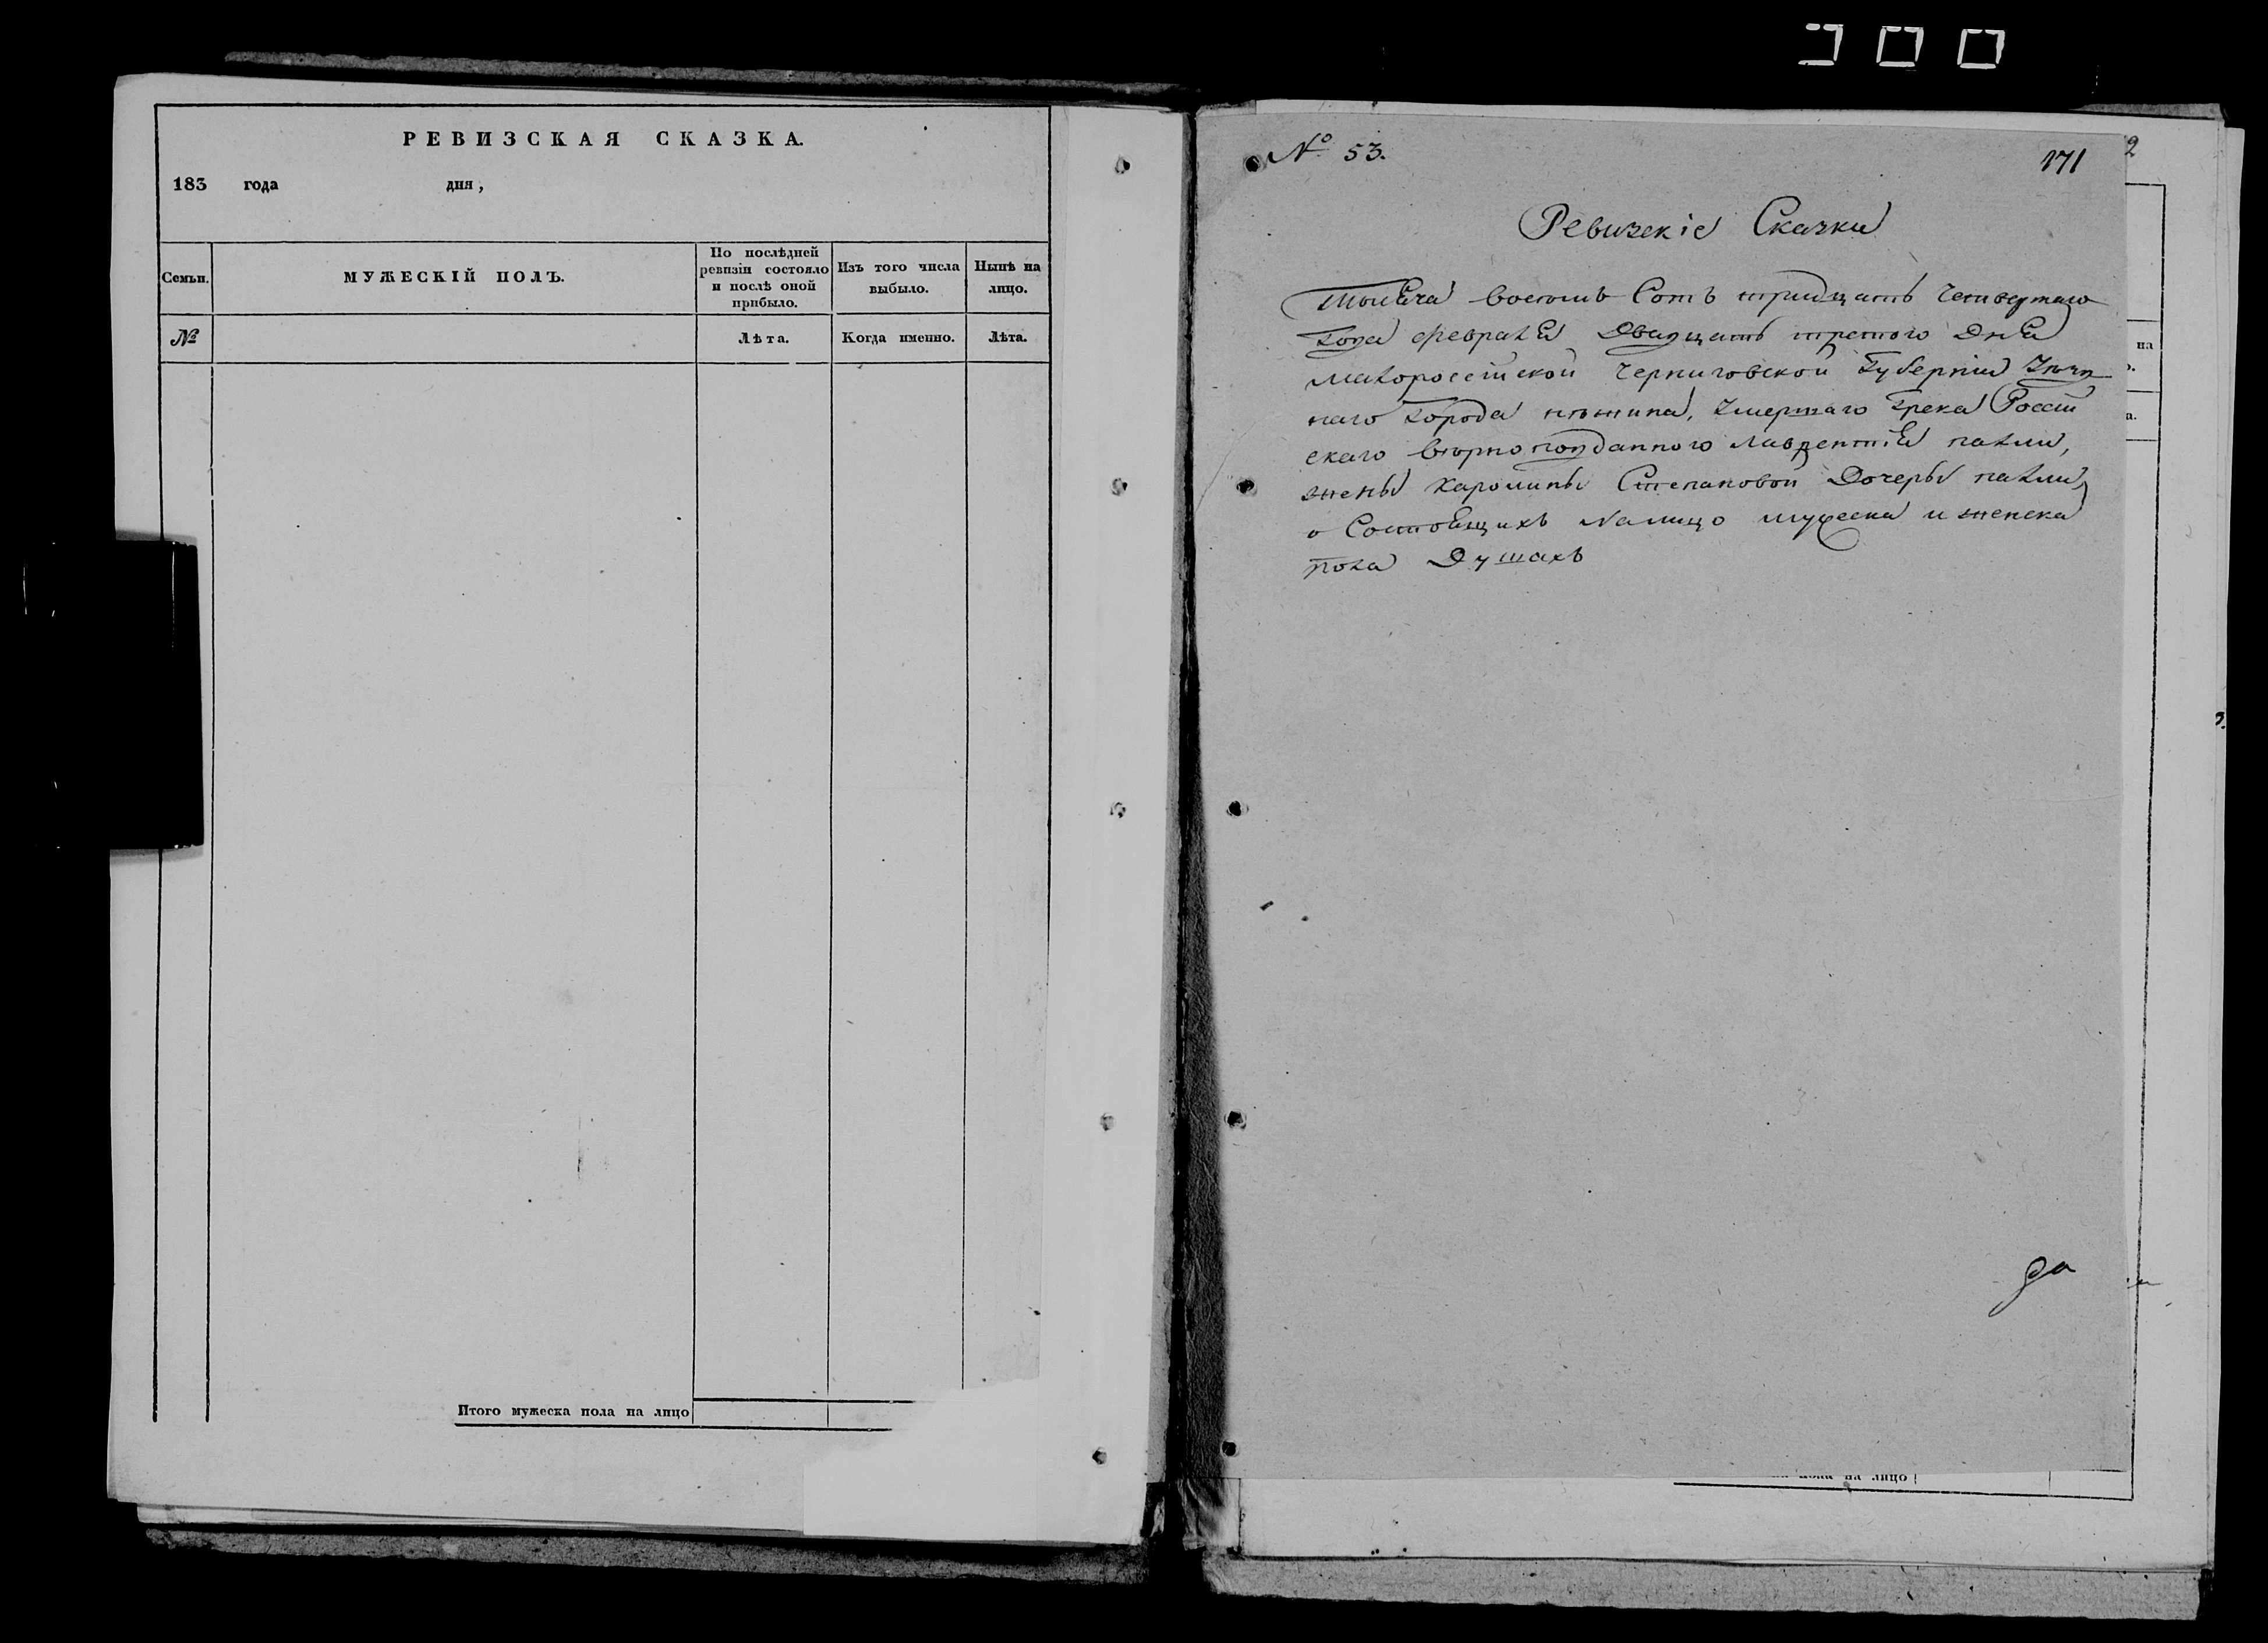 РЕВИЗСКАЯ СКАЗКА.
183 года дня,
Семьи.
МУЖЕСКІЙ ПОЛЪ.
По послѣдней
ревизіи состояло
и послѣ оной
прибыло.
Изъ того числа
выбыло.
Нынѣ на
лицо.
№
Лѣта.
Когда именно.
Лѣта.
Итого мужеска пола на лицо
№ 53.
171
2
Ревизскіе Сказки
Тысеча восемь Сотъ тридцать Четвертаго
Года февраля Двадцать третого Дня
Малороссійской Черниговской Губерніи
наго Города нѣжина, Умершаго Грека Россій
скаго вѣрноподданного Лаврентія палли,
жены Каролины Степановой Дочеры палли,
о Состоящихъ Налицо мужеска и женска
пола Душахъ
да
на
а.
пола на лицо